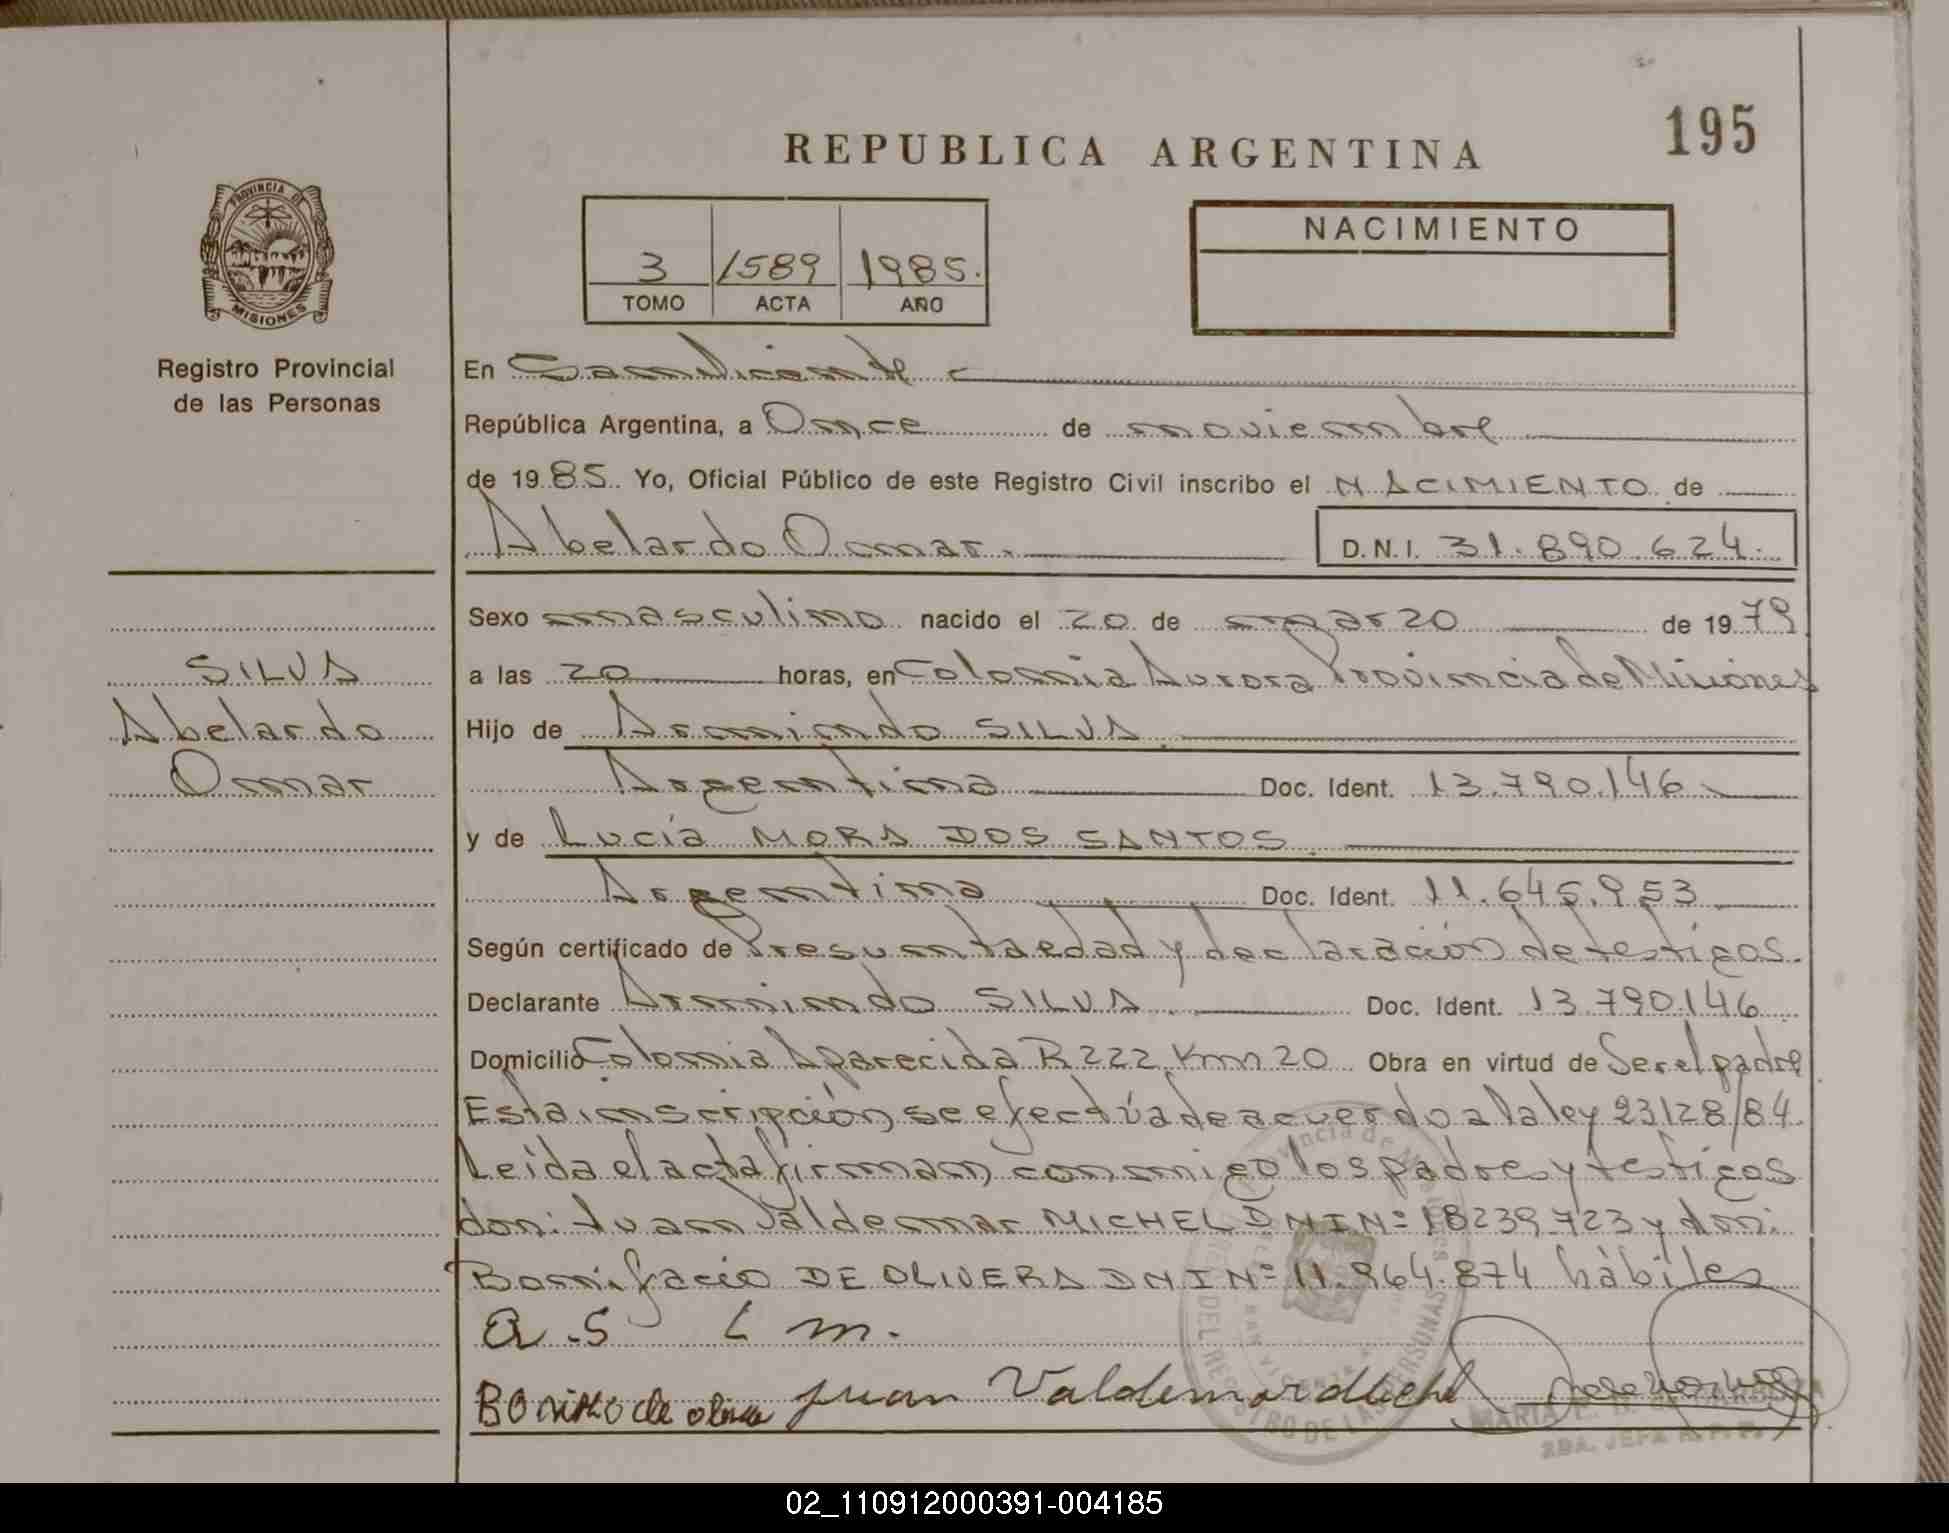 195
REPUBLICA ARGENTINA
PROVINCIA DE
MISIONES
3 1589 1985.
TOMO ACTA AÑO
NACIMIENTO
Registro Provincial
de las Personas
En San Vicente
República Argentina, a Once de noviembre
de 1985. Yo, Oficial Público de este Registro Civil inscribo el NACIMIENTO de
Abelardo Omar.
D.N.I. 31.890.624.
Sexo masculino nacido el 20 de marzo de 1979
a las 20 horas, en Colonia Aurora Provincia de Misiones
SILVA
Abelardo
Omar
Hijo de Armindo SILVA
Argentina Doc. Ident. 13.790.146
y de Lucía MORA DOS SANTOS
Argentina Doc. Ident. 11.645.953
Según certificado de Presunta edad y declaración de testigos.
Declarante Armindo SILVA Doc. Ident. 13.790.146
Domicilio Colonia Aparecida R 222 Km 20 Obra en virtud de Ser el padre
Esta inscripción se efectúa de acuerdo a la ley 23128/84.
Leída el acta firman conmigo los padres y testigos
don: Juan Valdemar MICHEL DNI Nº 18239.723 y don:
Bonifacio DE OLIVERA DNI Nº 11.964.874 hábiles
A.S L M.
Juan Valdemar Michel
02_110912000391-004185